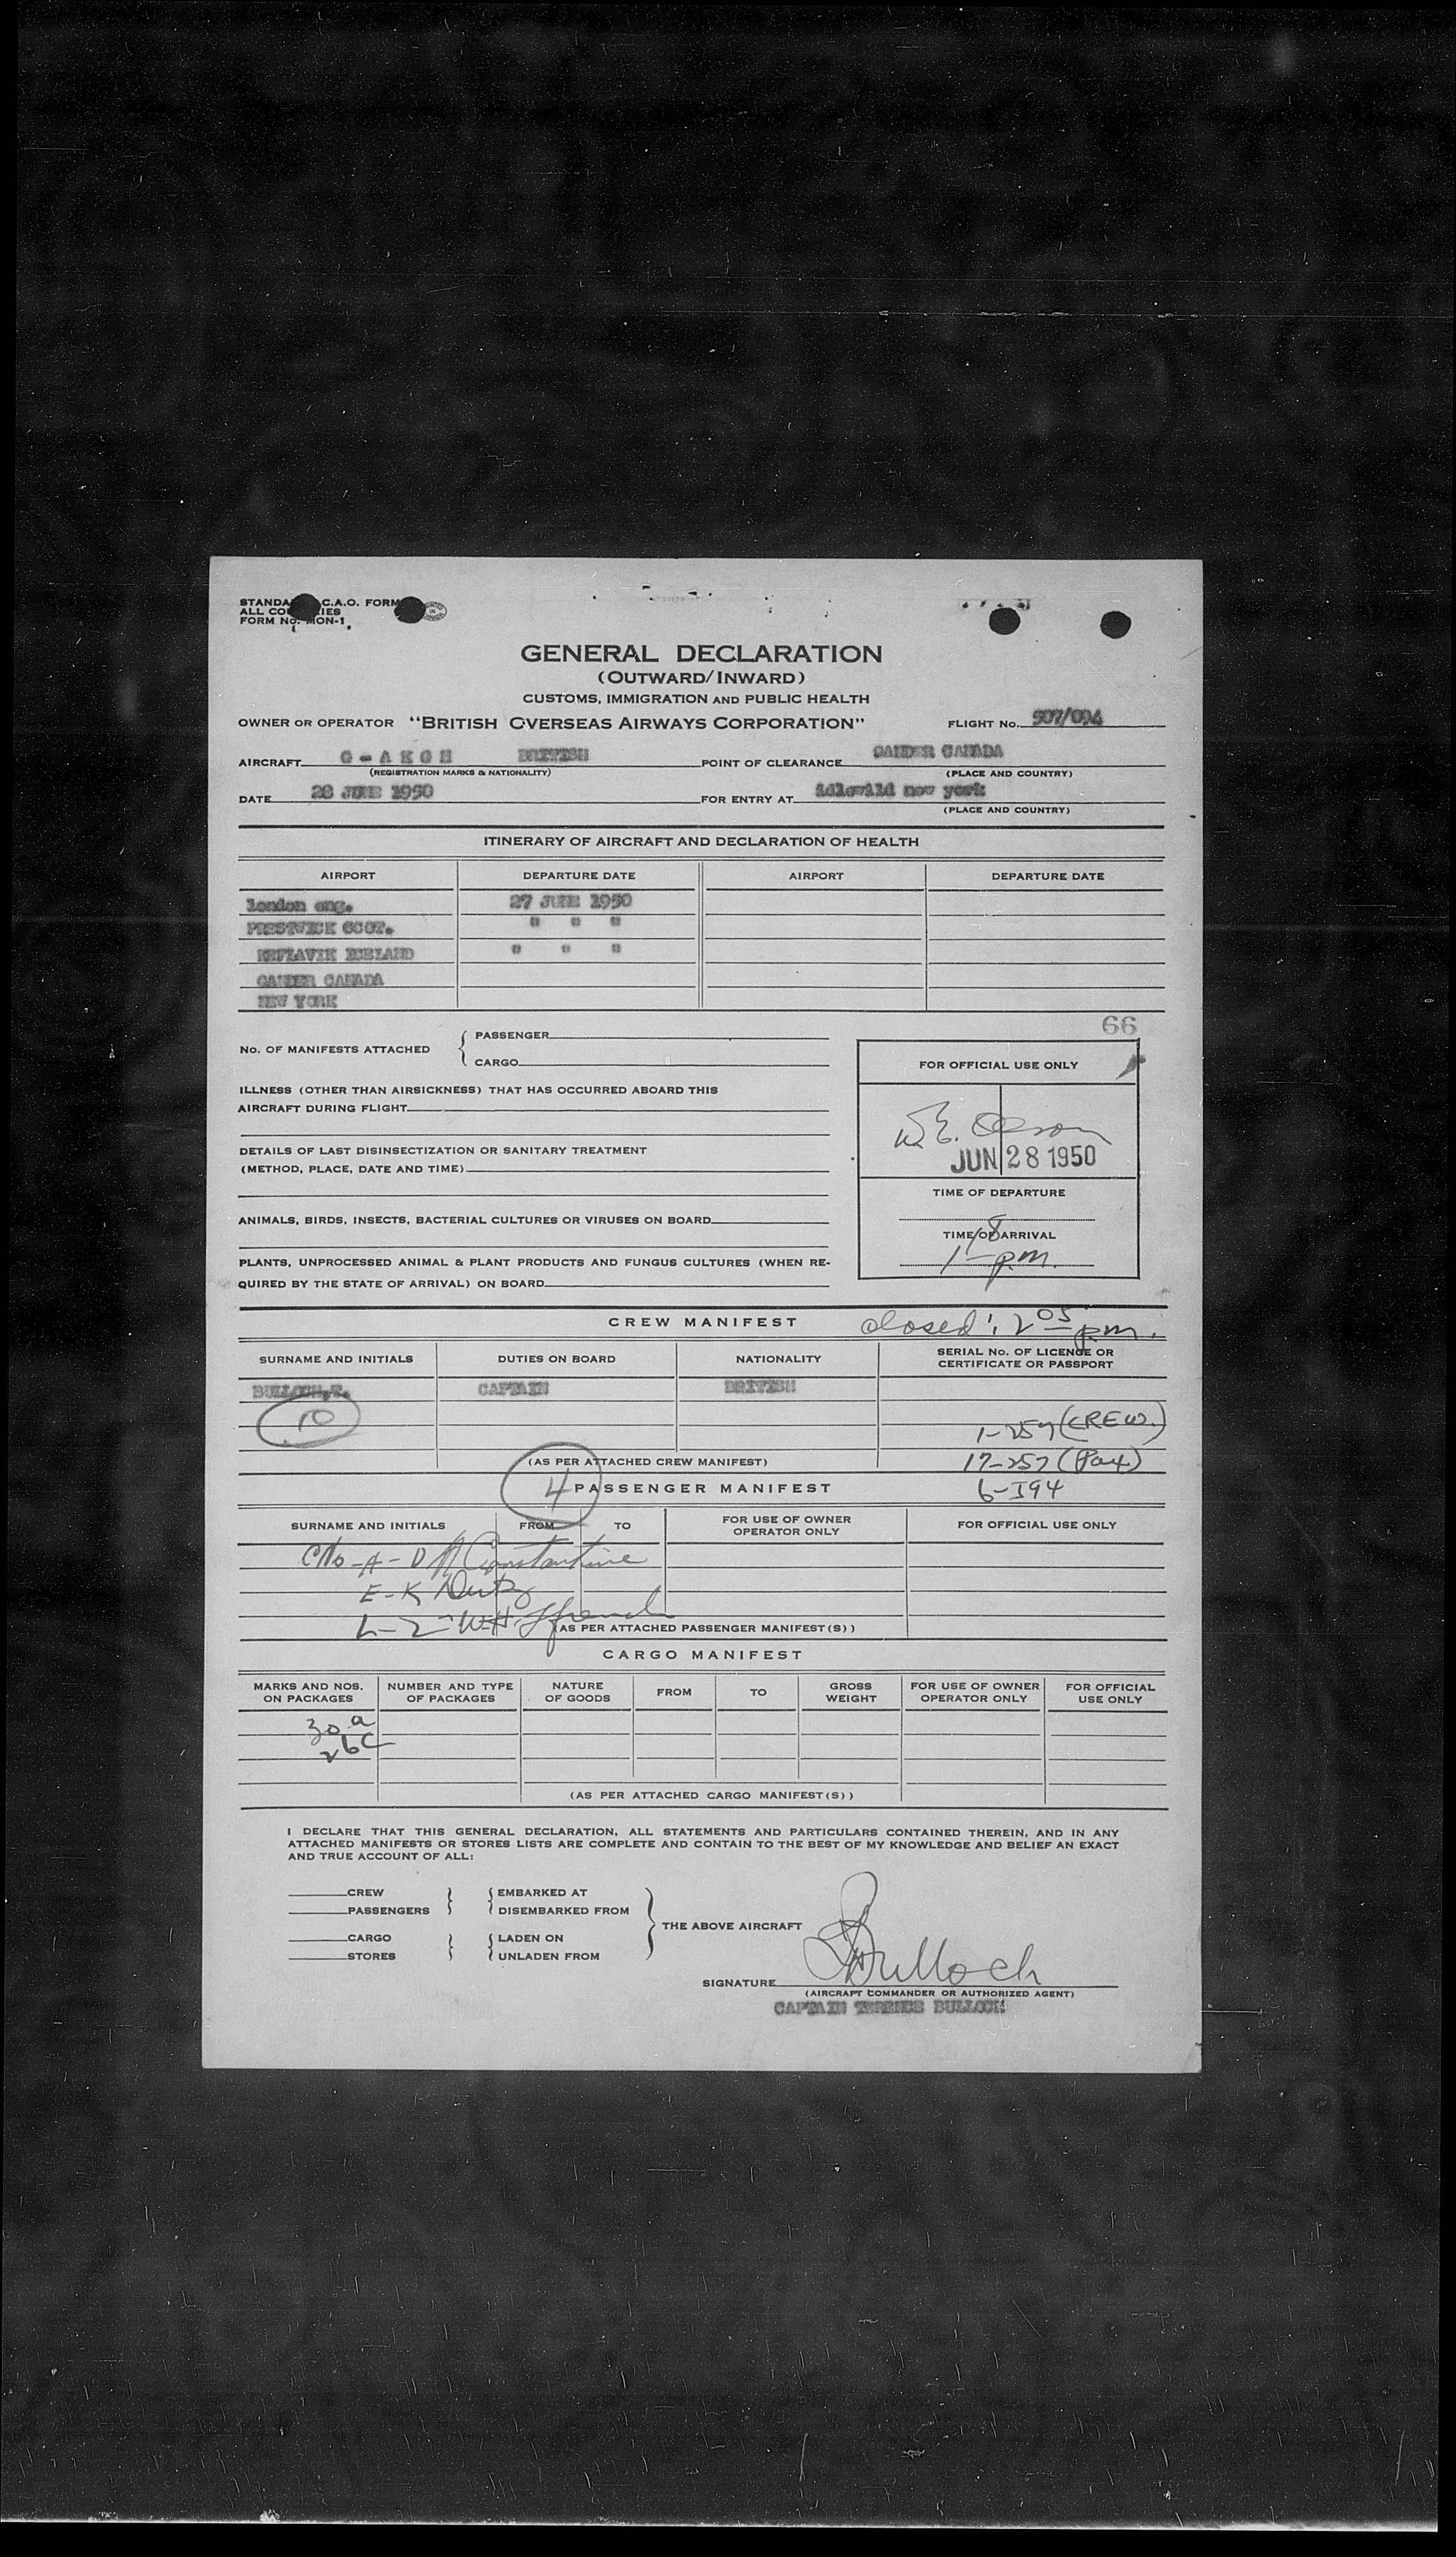 C.A.O. FORM
FORM No. MON-1
GENERAL DECLARATION
(OUTWARD/INWARD)
CUSTOMS, IMMIGRATION AND PUBLIC HEALTH
OWNER OR OPERATOR "BRITISH OVERSEAS AIRWAYS CORPORATION" FLIGHT No.
AIRCRAFT BRITISH POINT OF CLEARANCE GANDER CANADA
(REGISTRATION MARKS & NATIONALITY) (PLACE AND COUNTRY)
DATE 28 JUNE 1950 FOR ENTRY AT idlewild new york
(PLACE AND COUNTRY)
ITINERARY OF AIRCRAFT AND DECLARATION OF HEALTH
AIRPORT DEPARTURE DATE AIRPORT DEPARTURE DATE
london eng. 27 JUNE 1950
PRESTWICK SCOT. " " "
KEFLAVIK ICELAND " " "
GANDER CANADA
NEW YORK
66
No. OF MANIFESTS ATTACHED { PASSENGER
CARGO
ILLNESS (OTHER THAN AIRSICKNESS) THAT HAS OCCURRED ABOARD THIS
AIRCRAFT DURING FLIGHT
DETAILS OF LAST DISINSECTIZATION OR SANITARY TREATMENT
(METHOD, PLACE, DATE AND TIME)
ANIMALS, BIRDS, INSECTS, BACTERIAL CULTURES OR VIRUSES ON BOARD
PLANTS, UNPROCESSED ANIMAL & PLANT PRODUCTS AND FUNGUS CULTURES (WHEN RE-
QUIRED BY THE STATE OF ARRIVAL) ON BOARD
FOR OFFICIAL USE ONLY
JUN 28 1950
TIME OF DEPARTURE
TIME OF ARRIVAL
p.m.
CREW MANIFEST closed: 2 05 p.m.
SURNAME AND INITIALS DUTIES ON BOARD NATIONALITY SERIAL No. OF LICENCE OR
CERTIFICATE OR PASSPORT
BULLOCH,T. CAPTAIN BRITISH
10
1-257 (CREW.)
(AS PER ATTACHED CREW MANIFEST) 17-257 (Pax)
4 PASSENGER MANIFEST 6-I94
SURNAME AND INITIALS FROM TO FOR USE OF OWNER
OPERATOR ONLY FOR OFFICIAL USE ONLY
A-D Constantine
E-K
L-Z W.H. Ffrench
(AS PER ATTACHED PASSENGER MANIFEST(S))
CARGO MANIFEST
MARKS AND NOS.
ON PACKAGES NUMBER AND TYPE
OF PACKAGES NATURE
OF GOODS FROM TO GROSS
WEIGHT FOR USE OF OWNER
OPERATOR ONLY FOR OFFICIAL
USE ONLY
30 a
(AS PER ATTACHED CARGO MANIFEST(S))
I DECLARE THAT THIS GENERAL DECLARATION, ALL STATEMENTS AND PARTICULARS CONTAINED THEREIN, AND IN ANY
ATTACHED MANIFESTS OR STORES LISTS ARE COMPLETE AND CONTAIN TO THE BEST OF MY KNOWLEDGE AND BELIEF AN EXACT
AND TRUE ACCOUNT OF ALL:
CREW } { EMBARKED AT
PASSENGERS DISEMBARKED FROM
} THE ABOVE AIRCRAFT
CARGO } { LADEN ON
STORES UNLADEN FROM
SIGNATURE Bulloch
(AIRCRAFT COMMANDER OR AUTHORIZED AGENT)
CAPTAIN BULLOCH